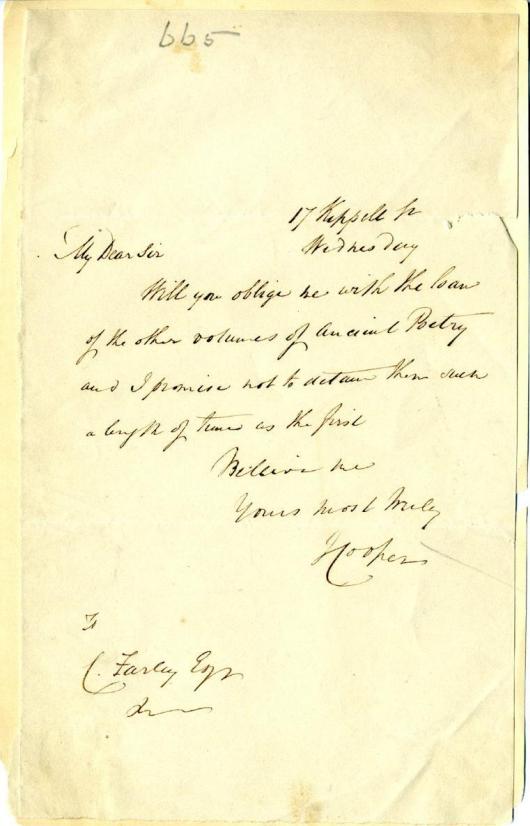 665
17 Keppell St
Wednesday
My Dear Sir
Will you oblige me with the loan
of the other volumes of Ancient Poetry
and I promise not to detain them such
a length of time as the first
Believe me
Yours most truly
JCooper
To
C. Farley Esqr